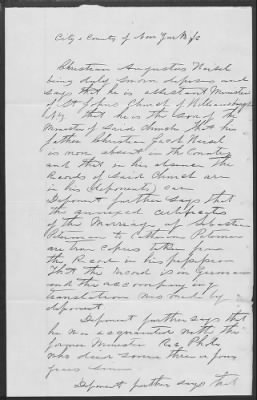 City & County of New York ss
Christian Augustus Weisel
being duly sworn deposes and
says that he is assistant Minister
of St Johns Church of Williamsburgh
N.Y. that he is the son of the
Minister of Said Church that his
father Christian Jacob Weisel
is now absent in the Country
and that in his absence the
Records of Said Church are
in his (deponents) care
Deponent further says that
the annexed certificates
of the Marriage of Sebastian
to
are true copies taken from
the Record in his possession
that the record is in German
and the accompanying
translation was made by
deponent
Deponent further says that
he was acquainted with the
former Minister Rev
who died some three or four
years since
Deponent further says that